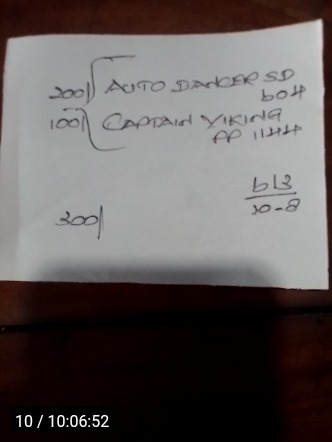 200/ AUTO DANCER SD
604
100/ CAPTAIN VIKING
PP 1144
613
300/
10-8
10 / 10:06:52